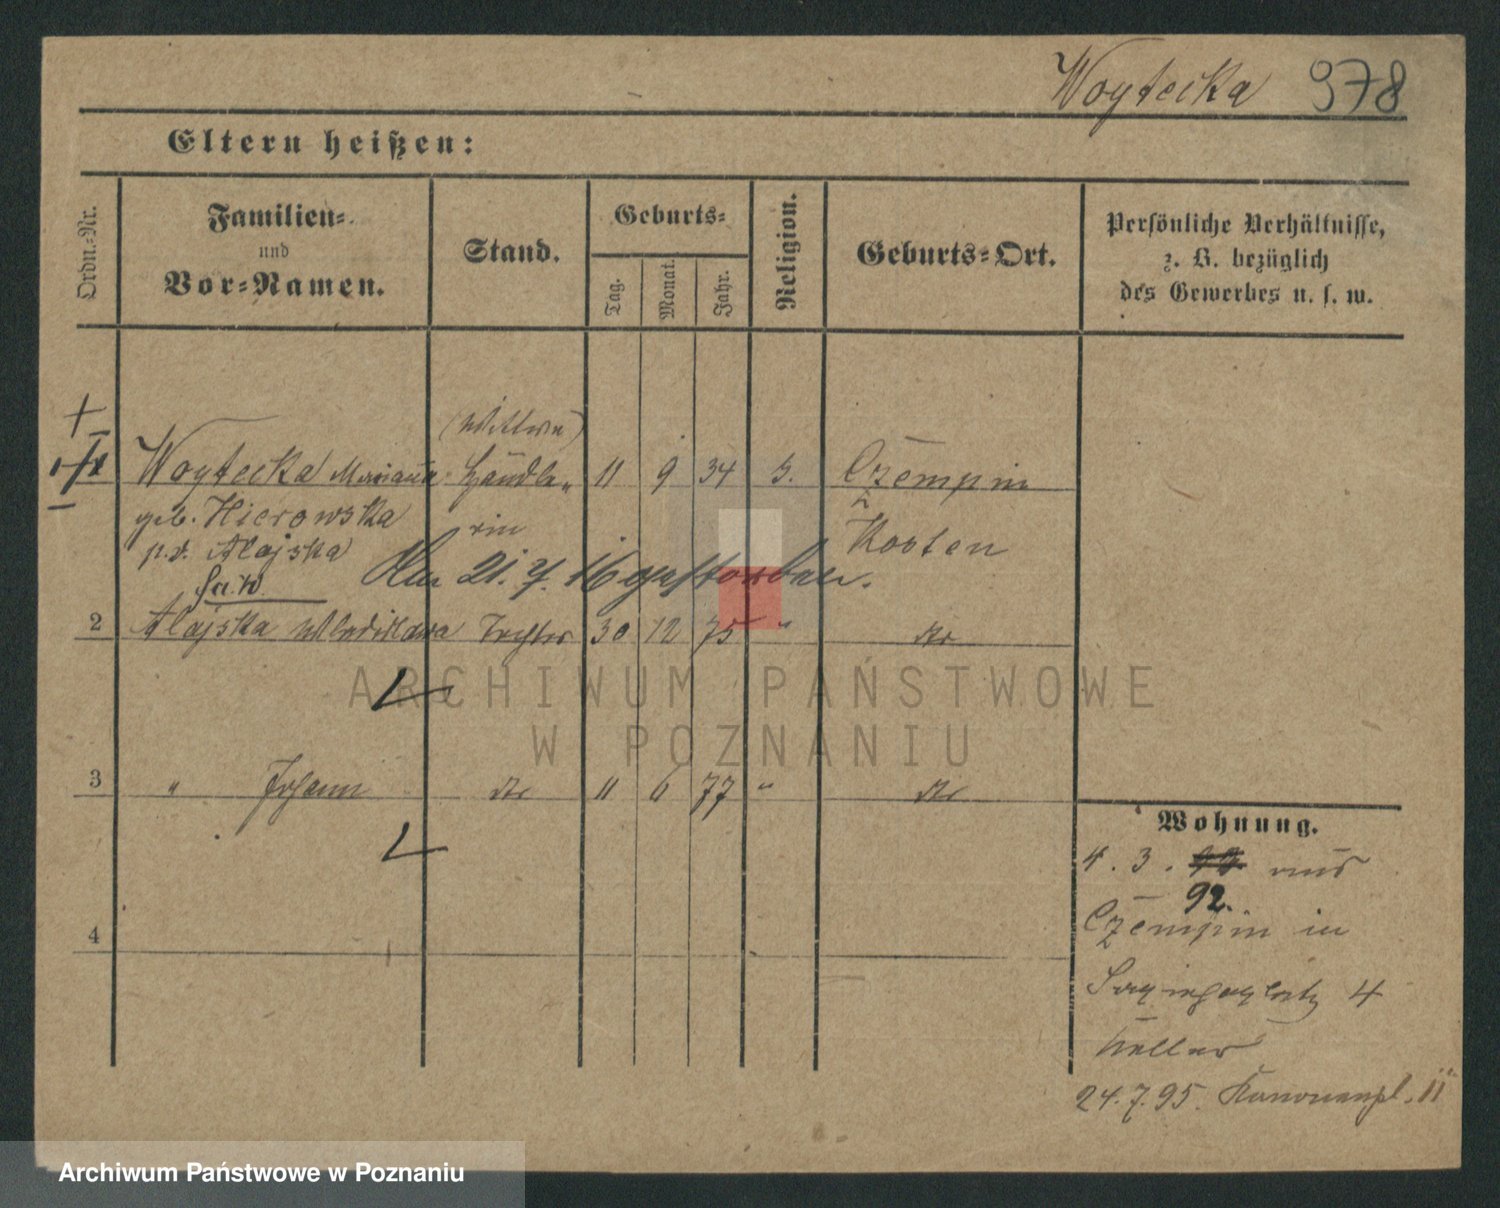 Woytecka 978
Eltern heißen:
Ordn.=Nr.
Familien=
und
Vor=Namen.
Stand.
Geburts=
Tag.
Monat.
Jahr.
Religion.
Geburts=Ort.
Persönliche Verhältnisse,
z. B. bezüglich
des Gewerbes u. s. w.
(Wittwe)
Woytecka Marianna Händle„ 11 9 34 Czempin
geb. Hierowska rin Kosten
p.v. Alojska
Am 21. 7. 16 gestorben.
2 Alojska Wladislawa Tochter 30 12 75 "
ARCHIWUM PAŃSTWOWE
W POZNANIU
3 " Johann 11 6 77 "
4
Wohnung.
4. 3. aus
92.
Czempin in
Sapiehaplatz 4
Keller
24.7.95. Kanonenpl. 11
Archiwum Państwowe w Poznaniu